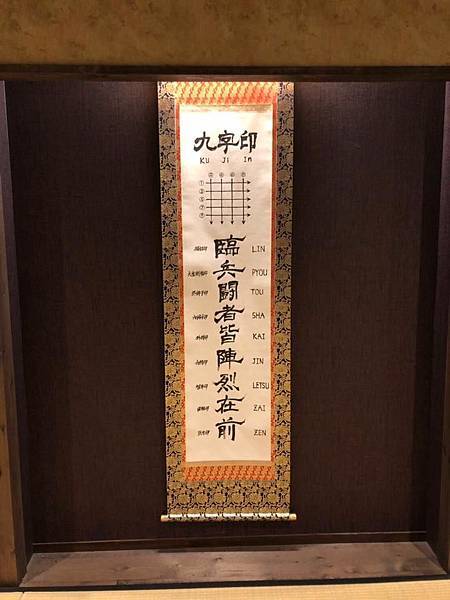 九字印
KU JI In
② ④ ⑥ ⑧
①
③
⑤
⑦
⑨
臨 LIN
兵 PYOU
闘 TOU
者 SHA
皆 KAI
陣 JIN
烈 LETSU
在 ZAI
前 ZEN